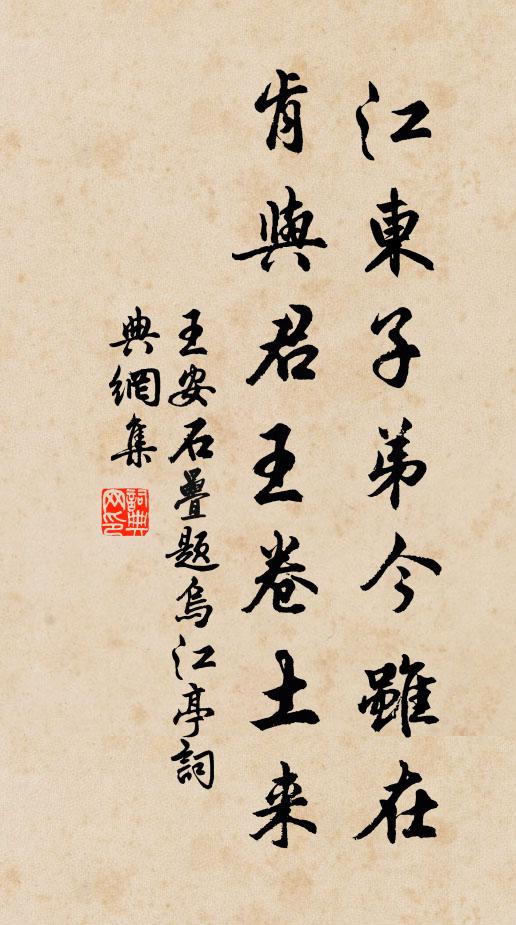 江東子弟今雖在
肯與君王卷土来
王安石疊題烏江亭詞
典網集
詞典網印